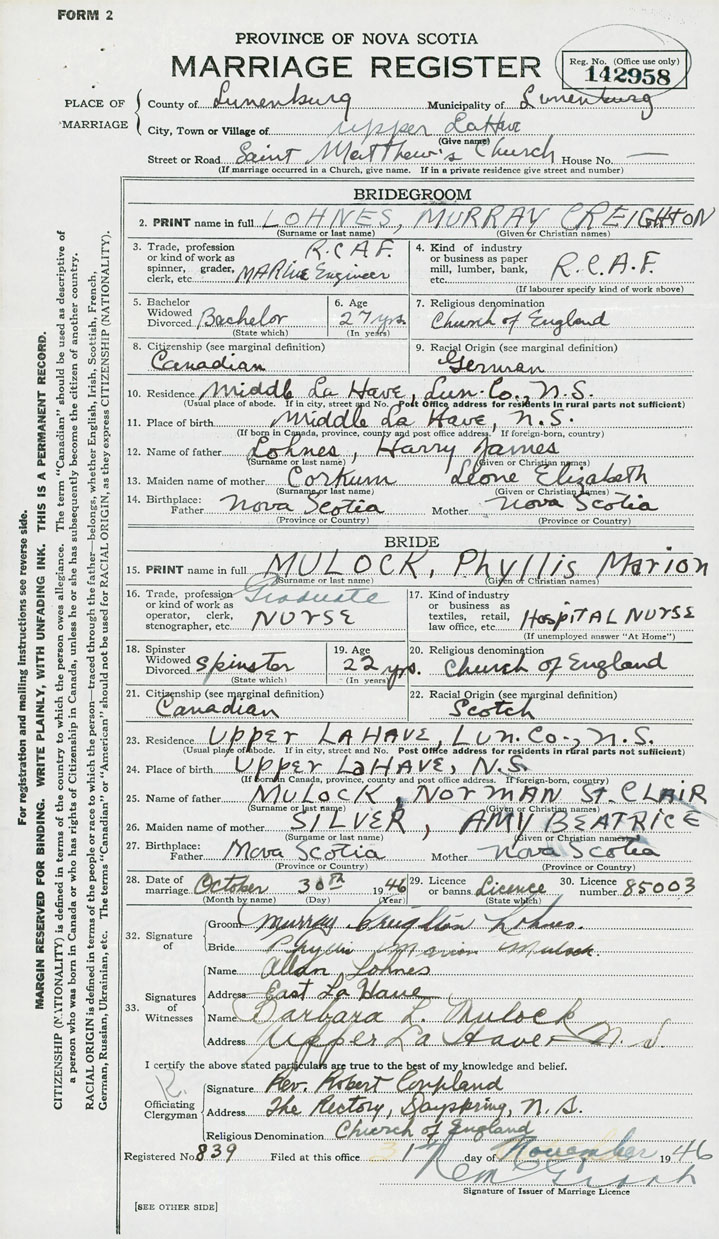 FORM 2
PROVINCE OF NOVA SCOTIA
MARRIAGE REGISTER
Reg. No. (Office use only)
142958
PLACE OF MARRIAGE
County of Lunenburg Municipality of Lunenburg
City, Town or Village of upper LaHave
(Give name)
Street or Road Saint Matthew's Church House No. —
(If marriage occurred in a Church, give name. If in a private residence give street and number)
BRIDEGROOM
2. PRINT name in full LOHNES, MURRAY CREIGHTON
(Surname or last name) (Given or Christian names)
3. Trade, profession or kind of work as spinner, grader, clerk, etc. R.C.A.F. MARINE Engineer
4. Kind of industry or business as paper mill, lumber, bank, etc. R.C.A.F.
(If labourer specify kind of work above)
5. Bachelor Widowed Divorced Bachelor
(State which)
6. Age 27 yrs.
(In years)
7. Religious denomination
Church of England
8. Citizenship (see marginal definition)
Canadian
9. Racial Origin (see marginal definition)
German
10. Residence Middle La Have, Lun. Co., N.S.
(Usual place of abode. If in city, street and No. Post Office address for residents in rural parts not sufficient)
11. Place of birth Middle La Have, N.S.
(If born in Canada, province, county and post office address. If foreign-born, country)
12. Name of father Lohnes, Harry James
(Surname or last name) (Given or Christian names)
13. Maiden name of mother Corkum Leone Elizabeth
(Surname or last name) (Given or Christian names)
14. Birthplace: Father Nova Scotia Mother Nova Scotia
(Province or Country) (Province or Country)
BRIDE
15. PRINT name in full MULOCK, Phyllis Marion
(Surname or last name) (Given or Christian names)
16. Trade, profession or kind of work as operator, clerk, stenographer, etc. Graduate NURSE
17. Kind of industry or business as textiles, retail, law office, etc. HOSPITAL NURSE
(If unemployed answer "At Home")
18. Spinster Widowed Divorced Spinster
(State which)
19. Age 22 yrs.
(In years)
20. Religious denomination
Church of England
21. Citizenship (see marginal definition)
Canadian
22. Racial Origin (see marginal definition)
Scotch
23. Residence Upper LAHAVE, Lun. Co., N.S.
(Usual place of abode. If in city, street and No. Post Office address for residents in rural parts not sufficient)
24. Place of birth Upper LaHAVE, N.S.
(If born in Canada, province, county and post office address. If foreign-born, country)
25. Name of father MULOCK, NORMAN St. CLAIR
(Surname or last name) (Given or Christian names)
26. Maiden name of mother SILVER, AMY BEATRICE
(Surname or last name) (Given or Christian names)
27. Birthplace: Father Nova Scotia Mother Nova Scotia
(Province or Country) (Province or Country)
28. Date of marriage October 30th 1946
(Month by name) (Day) (Year)
29. Licence or banns Licence
(State which)
30. Licence number 85003
32. Signature of
Groom Murray Creighton Lohnes.
Bride Phyllis Marion Mulock.
33. Signatures of Witnesses
Name Allan Lohnes
Address East La Have
Name Barbara L. Mulock
Address Upper La Have N.S.
I certify the above stated particulars are true to the best of my knowledge and belief.
Officiating Clergyman
Signature Rev. Robert Copland
Address The Rectory, Dayspring, N.S.
Religious Denomination Church of England
Registered No. 839 Filed at this office day of November 1946
Signature of Issuer of Marriage Licence
[SEE OTHER SIDE]
For registration and mailing instructions see reverse side.
MARGIN RESERVED FOR BINDING. WRITE PLAINLY, WITH UNFADING INK. THIS IS A PERMANENT RECORD.
CITIZENSHIP (NATIONALITY) is defined in terms of the country to which the person owes allegiance. The term "Canadian" should be used as descriptive of
a person who was born in Canada or who has rights of Citizenship in Canada, unless he or she has subsequently become the citizen of another country.
RACIAL ORIGIN is defined in terms of the people or race to which the person—traced through the father—belongs, whether English, Irish, Scottish, French,
German, Russian, Ukrainian, etc. The terms "Canadian" or "American" should not be used for RACIAL ORIGIN, as they express CITIZENSHIP (NATIONALITY).